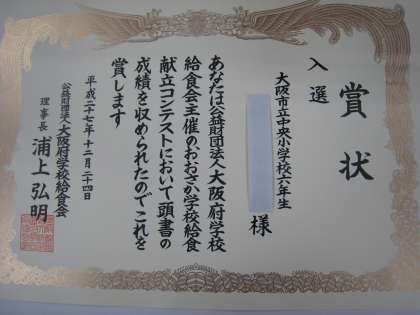 賞状
入選
大阪市立中央小学校六年生
様
あなたは公益財団法人大阪府学校
給食会主催のおおさか学校給食
献立コンテストにおいて頭書の
成績を収められたのでこれを
賞します
平成二十七年十二月二十四日
公益財団法人大阪府学校給食会
理事長 浦上弘明